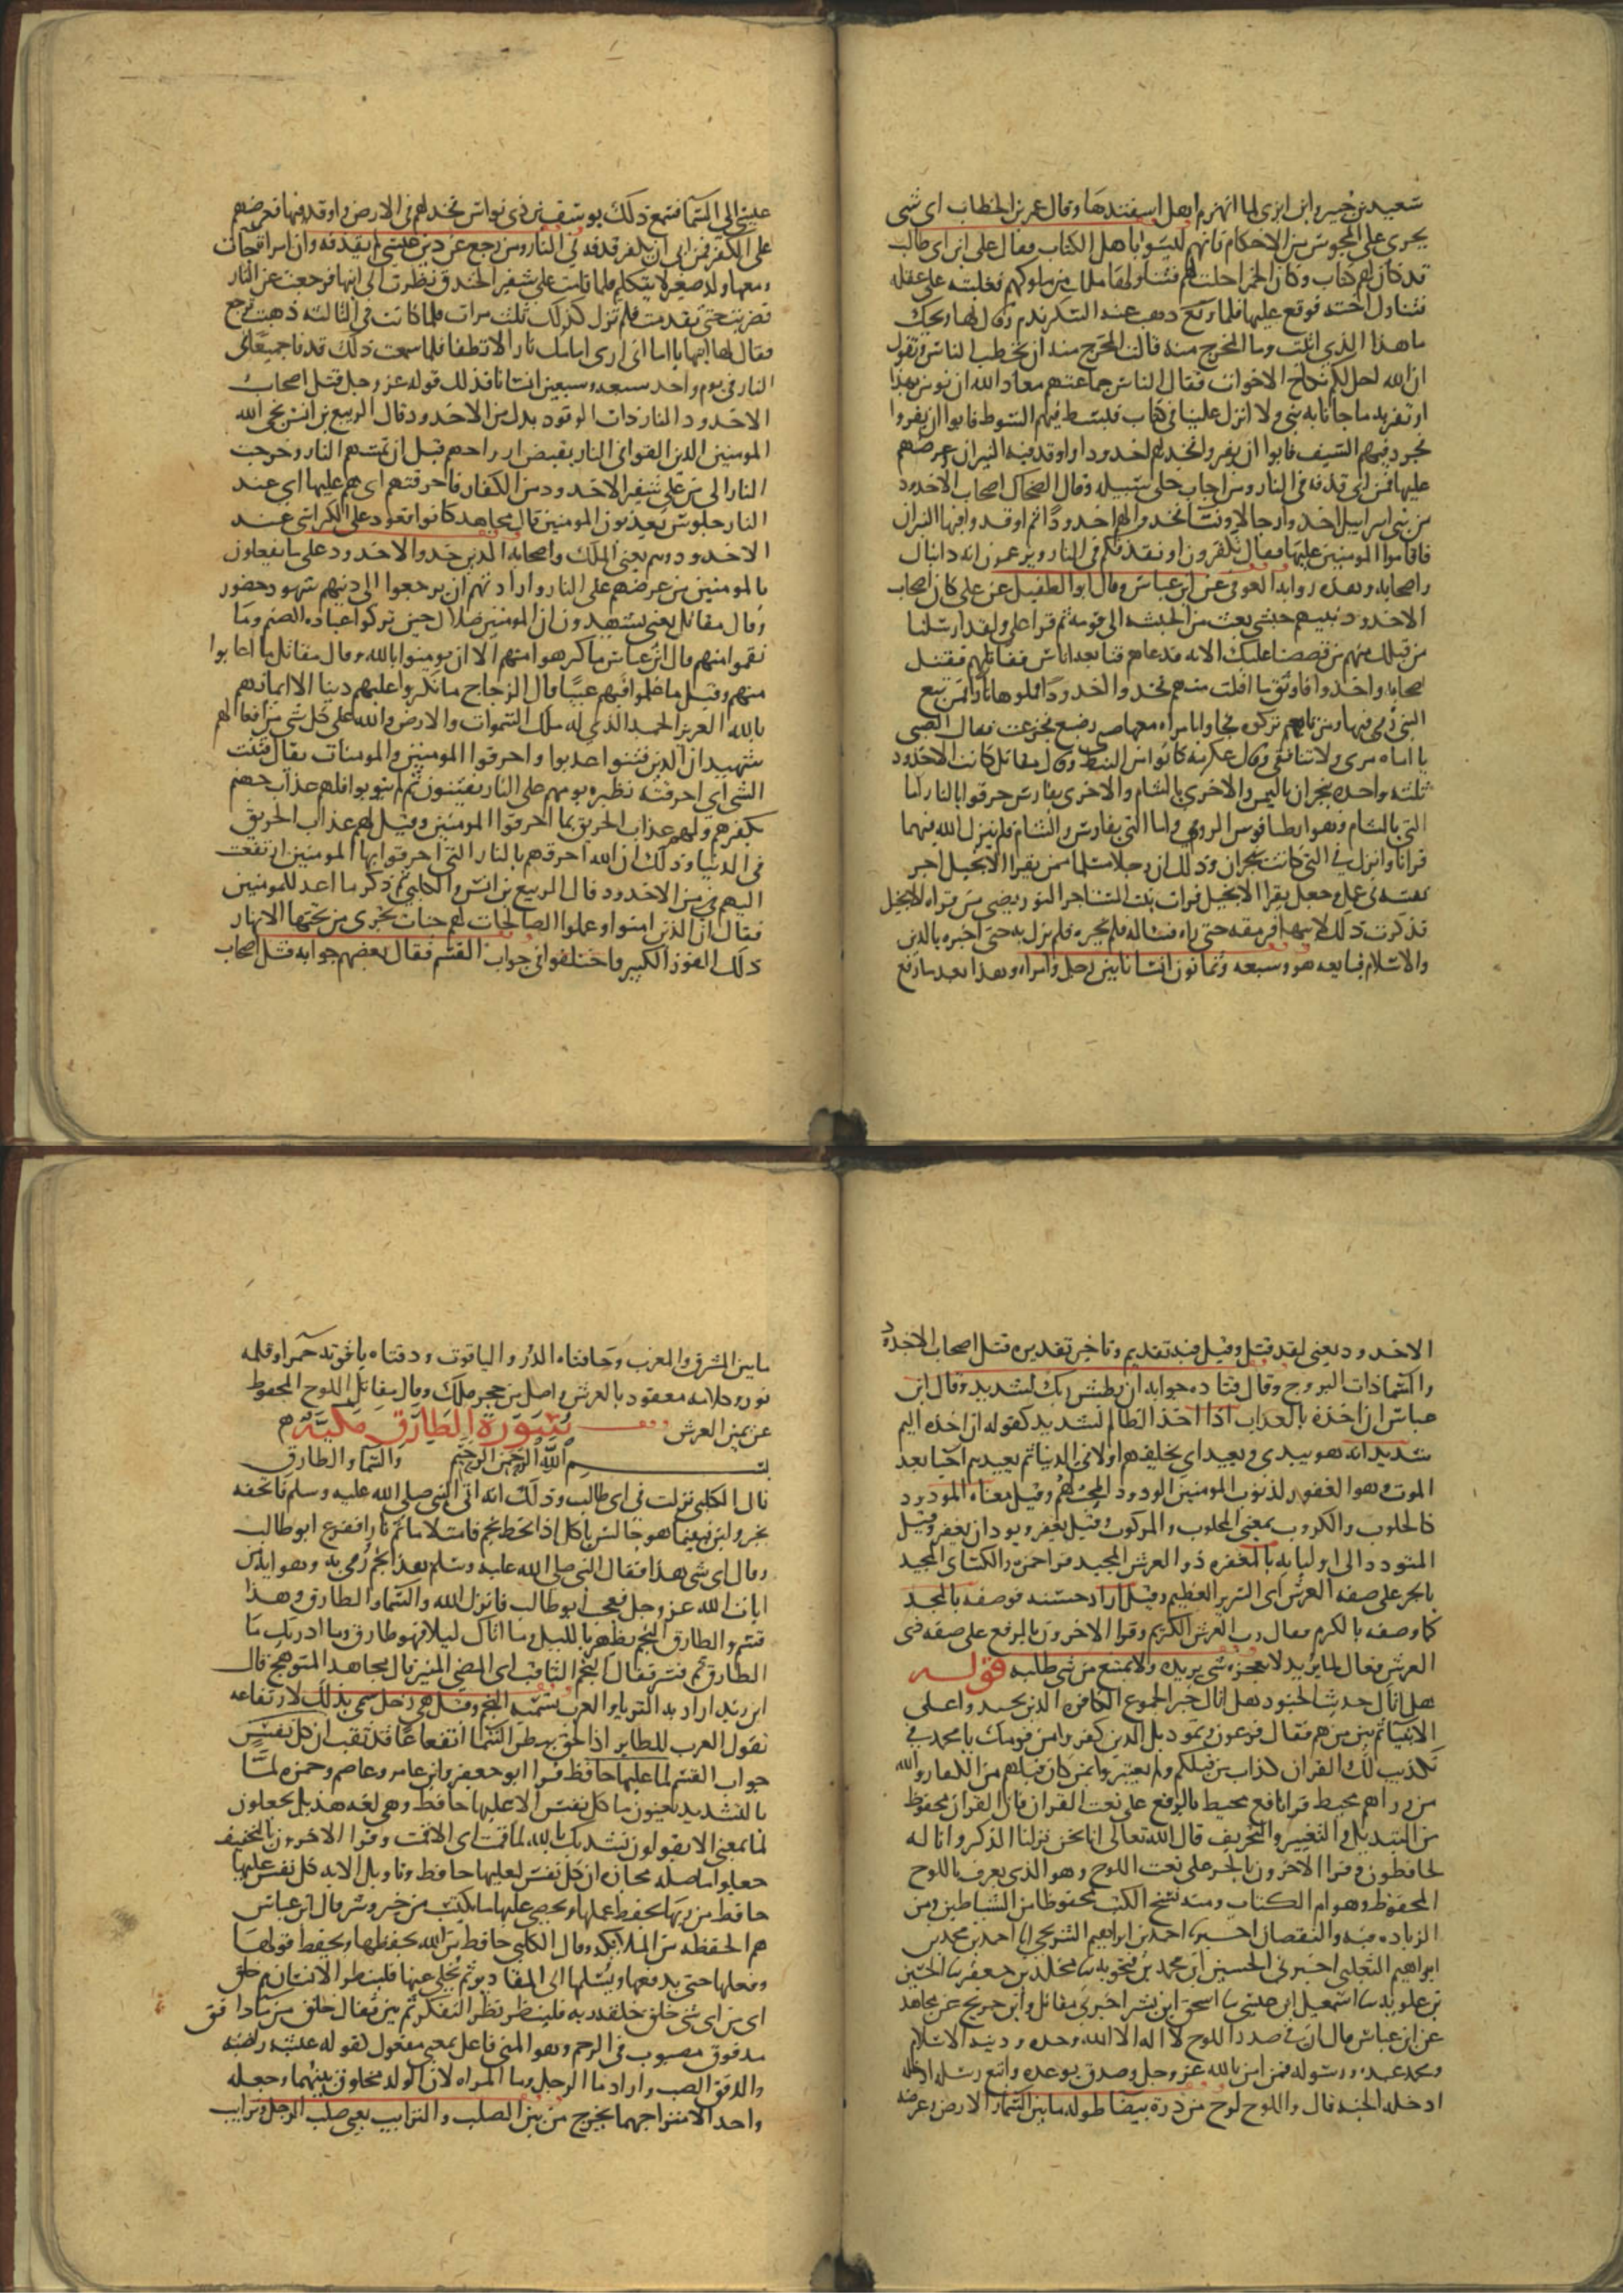 سعيد بن جبير وابن ابزى لما انهزم اهل اسفندهار وقال عمر بن الخطاب اى شى
يجرى على المجوس من الاحكام فانهم ليسوا باهل الكتاب فقال على ابن ابى طالب
قد كان لهم كتاب وكان الخمر احلت لهم فتناولها ملك من ملوكهم فغلبته على عقله
فتناول اخته فوقع عليها فلما وقع ذهب عنه السكر ندم وقال لها ويحك
ما هذا الذى اتيت وما المخرج منه قالت المخرج منه ان تخطب الناس وتقول
ان الله احل لكم نكاح الاخوات فقال الناس جماعتهم معاد الله ان نومن بهذا
او نقر به ما جانا به نبى ولا انزل علينا فى كتاب فبسط فيهم السوط فابوا ان يقروا
فجرد فيهم السيف فابوا ان يقروا فخد لهم اخدودا واوقد فيه النيران وعرضهم
عليها فمن ابى قذفه فى النار ومن اجاب خلى سبيله وقال الضحاك اصحاب الاخدود
من بنى اسراييل اخذوا رجالا ونسا فخدوا لهم اخدودا ثم اوقدوا فيها النيران
فاقاموا المومنين عليها فقال تكفرون او نقذفكم فى النار ويزعمون انه دانيال
واصحابه وهذه رواية العوفى عن ابن عباس وقال ابو الطفيل عن على كان اصحاب
الاخدود نبيهم حبشى بعث من الحبشه الى قومه ثم قرا على ولقد ارسلنا
من قبلك منهم من قصصنا عليك الايه فدعاهم فتابعه اناس فقاتلهم فقتل
اصحابه واخذوا فاوثق ما افلت منهم فخدوا اخدودا فملوها نارا فمن تبع
النبى رمى فيها ومن تابعهم تركوه فجاوا بامراه معها صبى رضيع فجزعت فقال الصبى
يا اماه مرى ولا تنافقى وقال عكرمه كانوا من النبط وقال مقاتل كانت الاخدود
ثلثه واحده بنجران باليمن والاخرى بالشام والاخرى بفارس حرقوا بالنار اما
التى بالشام وهو ابطانوس الرومى واما التى بفارس والشام فلم ينزل الله فيهما
قرانا وانزل فى التى كانت بنجران وذلك ان رجلا مسلما ممن يقرا الانجيل اجر
نفسه فى عمل وجعل يقرا الانجيل فرات بنت المستاجر النور يضى من قراه الانجيل
فذكرت ذلك لابيها فرمقه حتى راه فساله فلم يخبره فلم يزل به حتى اخبره بالدين
والاسلام فبايعه هو وسبعه وثمانون انسانا بين رجل وامراه وهذا بعد ما رفع
عيسى الى السما فسمع ذلك يوسف بن ذى نواس فخد لهم فى الارض واوقد فيها فعرضهم
على الكفر فمن ابى ان يكفر قذفه فى النار ومن رجع عن دين عيسى لم يقذفه وان امراه جات
ومعها ولد صغير لا يتكلم فلما قامت على شفير الخندق نظرت الى ابنها فرجعت عن النار
فضربت حتى تقدمت فلم تزل كذلك ثلث مرات فلما كانت فى الثالثه ذهبت ترجع
فقال لها ابنها يا اماه انى ارى امامك نارا لا تطفا فلما سمعت ذلك قذفا جميعا فى
النار فى يوم واحد سبعه وسبعين انسانا فذلك قوله عز وجل قتل اصحاب
الاخدود النار ذات الوقود بدل من الاخدود قال الربيع بن انس نجى الله
المومنين الذين القوا فى النار بقبض ارواحهم قبل ان تمسهم النار وخرجت
النار الى من على شفير الاخدود من الكفار فاحرقتهم اى هم عليها اى عند
النار جلوس يعذبون المومنين قال مجاهد كانوا قعود على الكراسى عند
الاخدود وهم يعنى الملك واصحابه الذين خدوا الاخدود على ما يفعلون
بالمومنين من عرضهم على النار وارادتهم ان يرجعوا الى دينهم شهود حضور
وقال مقاتل يعنى يشهدون ان المومنين ضلال حين تركوا عباده الصنم وما
نقموا منهم قال ابن عباس ما كرهوا منهم الا ان يومنوا بالله وقال مقاتل ما اعابوا
منهم وقيل ما علموا فيهم عيبا قال الزجاج ما انكروا عليهم دينا الا ايمانهم
بالله العزيز الحميد الذى له ملك السموات والارض والله على كل شى من افعالهم
شهيد ان الذين فتنوا عذبوا واحرقوا المومنين والمومنات يقال فتنت
الشى اى احرقته نظيره يوم هم على النار يفتنون ثم لم يتوبوا فلهم عذاب جهنم
بكفرهم ولهم عذاب الحريق بما احرقوا المومنين وقيل لهم عذاب الحريق
فى الدنيا وذلك ان الله احرقهم بالنار التى احرقوا بها المومنين ارتفعت
اليهم من الاخدود قال الربيع بن انس والكلبى ثم ذكر ما اعد للمومنين
فقال ان الذين امنوا وعملوا الصالحات لهم جنات تجرى من تحتها الانهار
ذلك الفوز الكبير واختلفوا فى جواب القسم فقال بعضهم جوابه قتل اصحاب
الاخدود يعنى لقد قتل وقيل فيه تقديم وتاخير تقديره قتل اصحاب الاخدود
والسما ذات البروج وقال قتاده جوابه ان بطش ربك لشديد وقال ابن
عباس ان اخذه بالعذاب اذا اخذ الظالم لشديد كقوله ان اخذه اليم
شديد انه هو يبدى ويعيد اى يخلقهم اولا فى الدنيا ثم يعيدهم احيا بعد
الموت وهو الغفور لذنوب المومنين الودود المحب لهم وقيل معناه المودود
كالحلوب والركوب بمعنى المحلوب والمركوب وقيل يغفر ويود ان يغفر وقيل
المتودد الى اوليايه بالمغفره ذو العرش المجيد قرا حمزه والكساى المجيد
بالجر على صفه العرش اى السرير العظيم وقيل اراد حسنه فوصفه بالمجد
كما وصفه بالكرم فقال رب العرش الكريم وقرا الاخرون بالرفع على صفه ذى
العرش فعال لما يريد لا يعجزه شى يريده ولا يمتنع منه شى طلبه قوله
هل اتاك حديث الجنود هل اتاك خبر الجموع الكافره الذين تجندوا على
الانبيا ثم بين من هم فقال فرعون وثمود بل الذين كفروا من قومك يا محمد فى
تكذيب لك القران كذاب من قبلكم ولم يعتبروا بمن كان قبلهم من الكفار والله
من وراهم محيط قرا نافع محفوظ بالرفع على نعت القران فان القران محفوظ
من التبديل والتغيير والتحريف قال الله تعالى انا نحن نزلنا الذكر وانا له
لحافظون وقرا الاخرون بالجر على نعت اللوح وهو الذى يعرف باللوح
المحفوظ وهو ام الكتاب ومنه نسخ الكتب محفوظا من الشياطين ومن
الزياده فيه والنقصان اخبرنا احمد بن ابراهيم الشريحى انا احمد بن محمد بن
ابراهيم الثعلبى اخبرنى الحسين ابن محمد بن فنجويه نا مخلد بن جعفر نا الحسن
بن علويه نا اسمعيل ابن عيسى نا اسحق ابن بشر اخبرنى مقاتل وابن جريج عن مجاهد
عن ابن عباس قال ان فى صدر اللوح لا اله الا الله وحده ودينه الاسلام
ومحمد عبده ورسوله فمن امن بالله عز وجل وصدق بوعده واتبع رسله ادخله
ادخله الجنه قال واللوح لوح من دره بيضا طوله ما بين السما والارض وعرضه
ما بين المشرق والمغرب وحافتاه الدر والياقوت ودفتاه ياقوته حمرا وقلمه
نور وكلامه معقود بالعرش واصله بن حجر ملك وقال مقاتل اللوح المحفوظ
عن يمين العرش سورة الطارق مكية
بسم الله الرحمن الرحيم والسما والطارق
قال الكلبى نزلت فى ابى طالب وذلك انه اتى النبى صلى الله عليه وسلم فاتحفه
بخبز ولبن فبينما هو جالس ياكل اذ انحط نجم فامتلا ما ثم نارا ففزع ابو طالب
وقال اى شى هذا فقال النبى صلى الله عليه وسلم هذا نجم رمى به وهو ايه من
ايات الله عز وجل فعجب ابو طالب فانزل الله والسما والطارق وهذا
قسم والطارق النجم يظهر بالليل وما اتاك ليلا فهو طارق وما ادريك ما
الطارق ثم فسر فقال النجم الثاقب اى المضى المنير قال مجاهد المتوهج قال
ابن زيد اراد به الثريا والعرب تسميه النجم وقيل هى زحل سمى بذلك لارتفاعه
تقول العرب للطاير اذا لحق ببطن السما ارتفعاعا قد ثقب ان كل نفس
جواب القسم لما عليها حافظ قرا ابو جعفر وابن عامر وعاصم وحمزه لما
بالتشديد يعنون ما كل نفس الا عليها حافظ وهى لغه هذيل يجعلون
لما بمعنى الا يقولون نشدتك بالله لما قمت اى الا قمت وقرا الاخرون بالتخفيف
جعلوا ما صله مجازه ان كل نفس لعليها حافظ وتاويل الايه كل نفس عليها
حافظ من ربها يحفظ عملها ويحصى عليها ما تكتسب من خير وشر قال ابن عباس
هم الحفظه من الملايكه وقال الكلبى حافظ من الله يحفظها ويحفظ قولها
وفعلها حتى يدفعها ويسلمها الى المقادير ثم يخلى عنها فلينظر الانسان مم خلق
اى من اى شى خلق خلقه ربه فلينظر نظر التفكر ثم بين فقال خلق من ما دافق
مدفوق مصبوب فى الرحم وهو المنى فاعل بمعنى مفعول كقوله عيشه راضيه
والدفق الصب واراد ما الرجل وما المراه لان الولد مخلوق منهما وجعله
واحدا لامتزاجهما يخرج من بين الصلب والترايب يعنى صلب الرجل وترايب